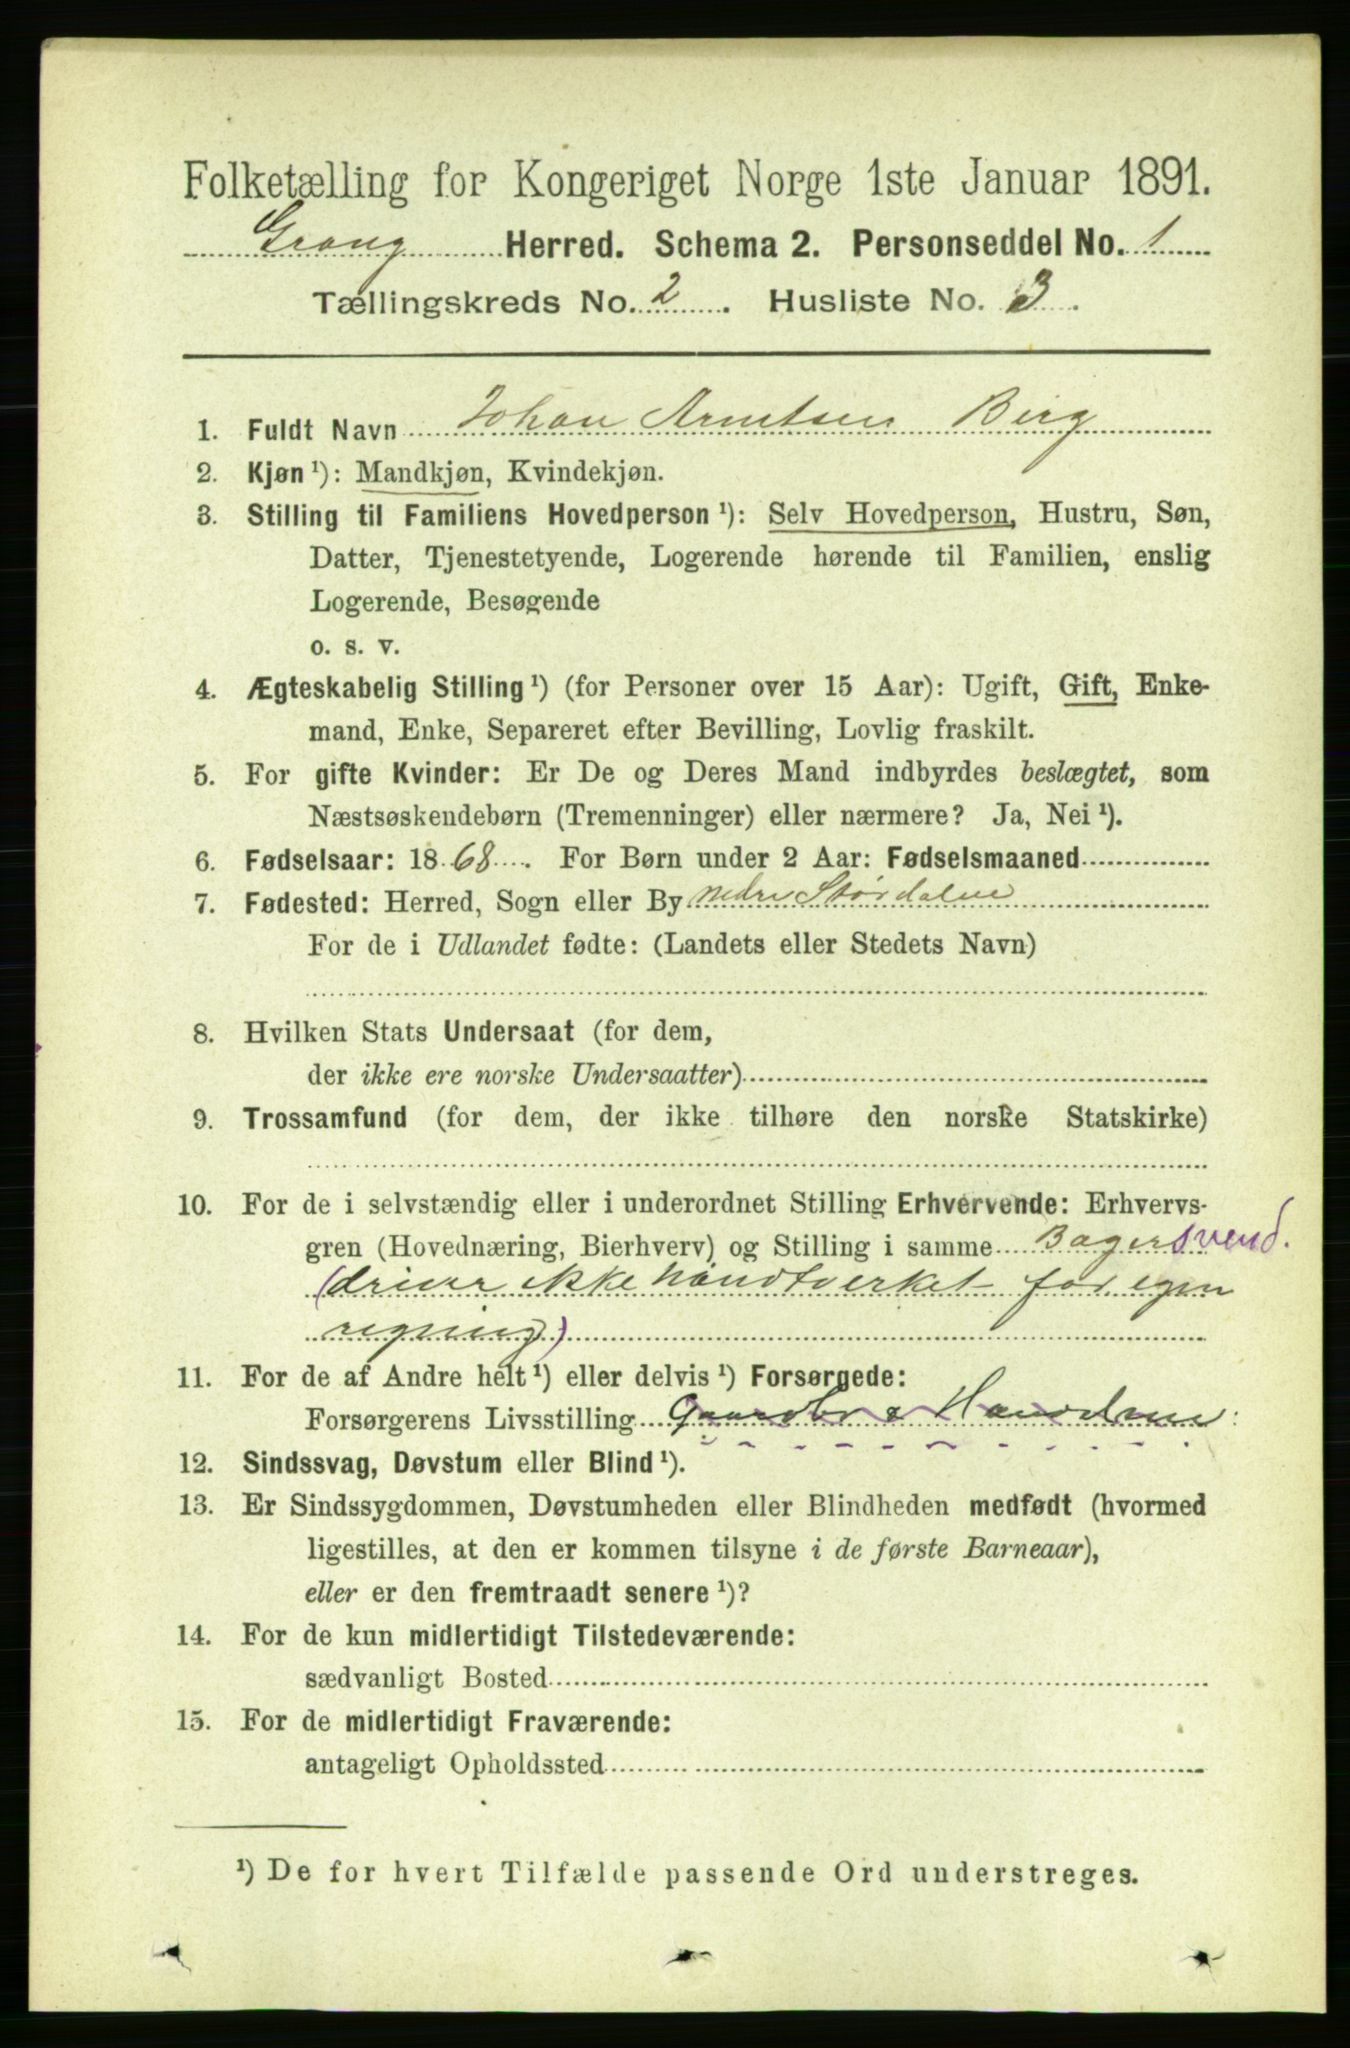 Folketælling for Kongeriget Norge 1ste Januar 1891.
Grong Herred. Schema 2. Personseddel No. 1
Tællingskreds No. 2. Husliste No. 3.
1. Fuldt Navn Johan Arntsen Berg
2. Kjøn ¹): Mandkjøn, Kvindekjøn.
3. Stilling til Familiens Hovedperson ¹): Selv Hovedperson, Hustru, Søn,
Datter, Tjenestetyende, Logerende hørende til Familien, enslig
Logerende, Besøgende
o. s. v.
4. Ægteskabelig Stilling ¹) (for Personer over 15 Aar): Ugift, Gift, Enke-
mand, Enke, Separeret efter Bevilling, Lovlig fraskilt.
5. For gifte Kvinder: Er De og Deres Mand indbyrdes beslægtet, som
Næstsøskendebørn (Tremenninger) eller nærmere? Ja, Nei ¹).
6. Fødselsaar: 1868. For Børn under 2 Aar: Fødselsmaaned
7. Fødested: Herred, Sogn eller By nedre Størdalen
For de i Udlandet fødte: (Landets eller Stedets Navn)
8. Hvilken Stats Undersaat (for dem,
der ikke ere norske Undersaatter)
9. Trossamfund (for dem, der ikke tilhøre den norske Statskirke)
10. For de i selvstændig eller i underordnet Stilling Erhvervende: Erhvervs-
gren (Hovednæring, Bierhverv) og Stilling i samme Bagersvend.
(driver ikke håndtverket for egen
regning)
11. For de af Andre helt ¹) eller delvis ¹) Forsørgede:
Forsørgerens Livsstilling
12. Sindssvag, Døvstum eller Blind ¹).
13. Er Sindssygdommen, Døvstumheden eller Blindheden medfødt (hvormed
ligestilles, at den er kommen tilsyne i de første Barneaar),
eller er den fremtraadt senere ¹)?
14. For de kun midlertidigt Tilstedeværende:
sædvanligt Bosted
15. For de midlertidigt Fraværende:
antageligt Opholdssted
¹) De for hvert Tilfælde passende Ord understreges.